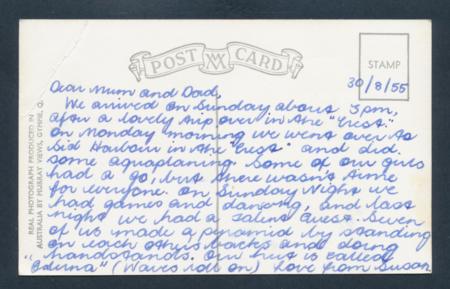 POST CARD
STAMP
REAL PHOTOGRAPH PRODUCED IN
AUSTRALIA BY MURRAY VIEWS, GYMPIE, Q.
30/8/55
Dear Mum and Dad,
We arrived on Sunday about 3pm,
after a lovely trip over in the "Crest."
On Monday morning we went over to
Sid Harbour in the "Crest" and did
some aquaplaning. Some of our guys
had a go, but there wasn't time
for everyone. On Sunday Night we
had games and dancing, and last
night we had a talent Quest. Seven
of us made a pyramid by standing
on each others backs and doing
handstands. Our hut is called
" (Waves roll on) Love from Susan